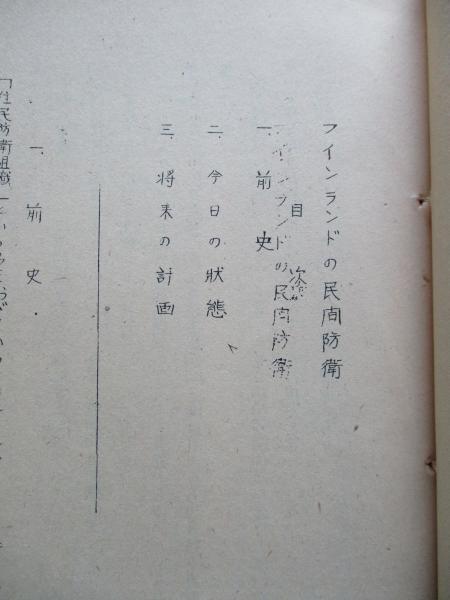 フインランドの民间防衛
目次
フインランドの民间防衛
一、前史
二、今日の狀態
三、将来の計画
一、前史.
「住民防衛組織」という